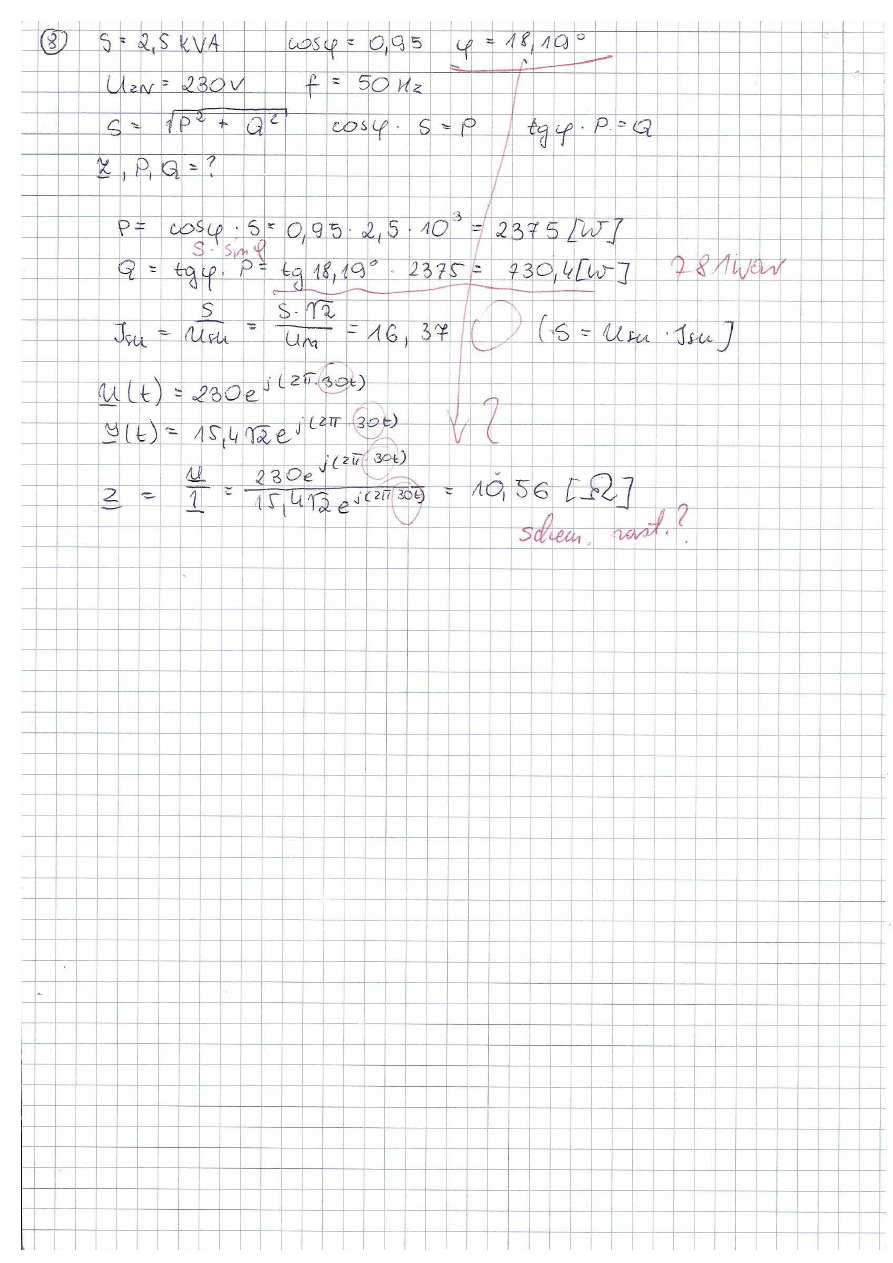 8 S = 2,5 KVA cosφ = 0,95 φ = 18,19°
UZN = 230V f = 50 Hz
S = √(P² + Q²) cosφ · S = P tgφ · P = Q
Z, P, Q = ?
P = cosφ · S = 0,95 · 2,5 · 10³ = 2375 [W]
S · sinφ
Q = tgφ · P = tg 18,19° · 2375 = 730,4 [W] 781 war
Jsu = S/Usu = S·√2/Um = 16,37 (S = Usu · Jsu]
U(t) = 230e^j(2π·30t)
Y(t) = 15,4√2e^j(2π·30t) ?
Z = U/I = 230e^j(2π·30t)/15,4√2e^j(2π·30t) = 10,56 [Ω]
schem. zast.?